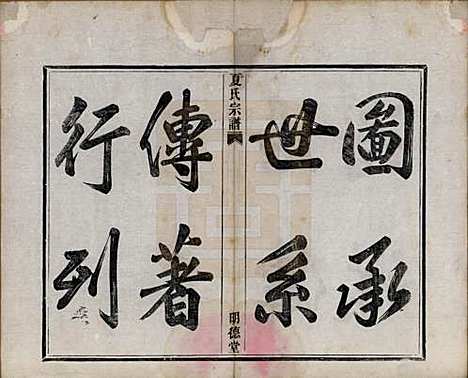 圖承
世系
夏氏宗譜
明德堂
傳著
行列